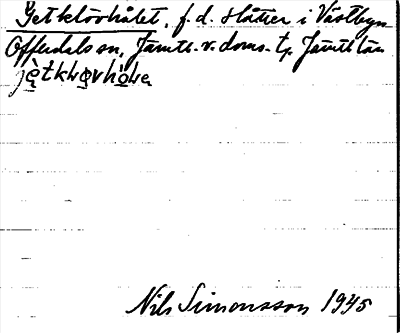 Jetklövhålet, f.d. slåtter i Västbyn
Offerdals sn, Jämtl. v. doms. tg, Jämtl. län
Nils Simonsson 1945